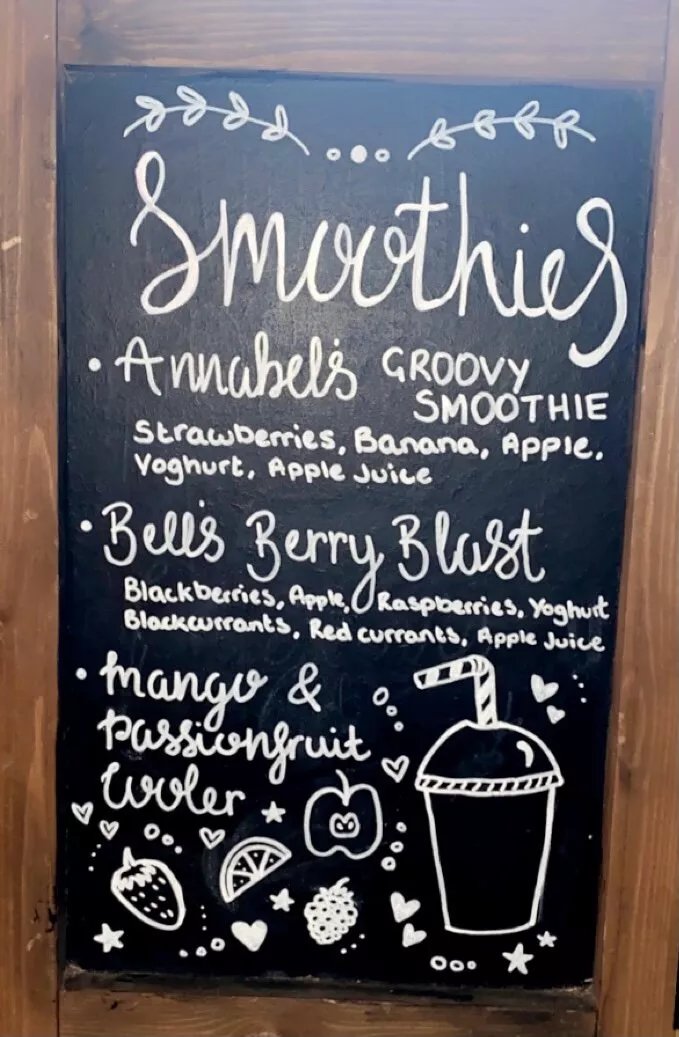 Smoothies
• Annabel's GROOVY
SMOOTHIE
Strawberries, Banana, Apple,
Yoghurt, Apple Juice
• Bell's Berry Blast
Blackberries, Apple, Raspberries, Yoghurt
Blackcurrants, Red currants, Apple Juice
• Mango &
Passionfruit
Cooler